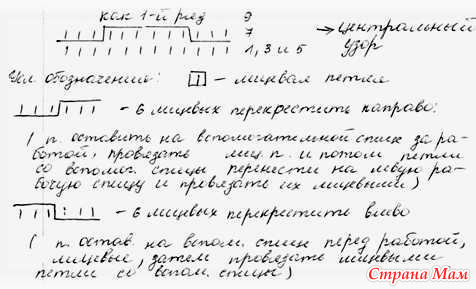 как 1-й ряд 9
7 → центральный
1, 3 и 5 узор
Усл. обозначения: - лицевая петля
- 6 лицевых перекрестить направо:
( п. оставить на вспомогательной спице за ра-
ботой, провязать лиц. п. и потом петли
со вспомог. спицы перенести на левую ра-
бочую спицу и провязать их лицевыми)
- 6 лицевых перекрестить влево
( п. остав. на вспом. спице перед работой,
лицевые, затем провязать лицевыми
петли со вспом. спицы)
Страна Мам